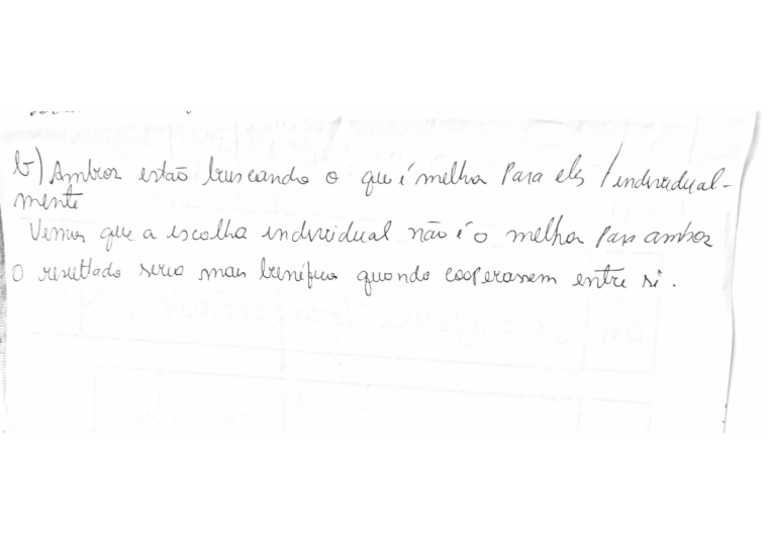 b) Ambos estão buscando o que é melhor para eles / individual-
mente
Vemos que a escolha individual não é o melhor para ambos
O resultado seria mais benéfico quando cooperassem entre si.